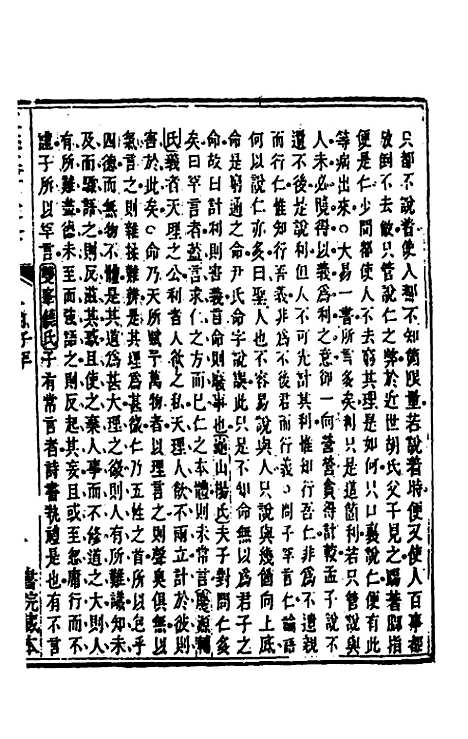 只都不說着使人都不知箇限量若說着時便又使人百事都
放倒不去做只管說仁之弊於近世胡氏父子見之踢著脚指
便是仁少間都使人不去窮其理是如何只口裏說仁便有此
等病出來○大易一書所言多矣利只是這箇利若只管說與
人未必曉得以義為利之意却一向營營貪得計較孟子說不
遺不後是說利但人不可先計其利惟知行吾仁非為不遺親
而行仁惟知行吾義非為不後君而行義○問子罕言仁論語
何以說仁亦多曰聖人也不容易說與人只說與幾箇向上底
命是窮通之命尹氏命字說誤此只是不知命無以為君子之
命故曰計利則害義言命則廢事也龜山楊氏夫子對問仁多
矣曰罕言者蓋言求仁之方而已仁之本體則未常言慶源輔
氏義者天理之公利者人欲之私天理人欲不兩立計於彼則
害於此矣○命乃天所賦予萬物者以理言之則聲臭俱無以
氣言之則雜揉難辨是其理為甚微仁乃五性之首所以包乎
四德而無物不體是其道為甚大理之微則人有所難識知未
及而驟語之則反滋其惑且使之棄人事而不修道之大則人
有所難盡德未至而強語之則反起其妄且或至忽庸行而不
謹子所以罕言雙峯饒氏子有常言者詩書執禮是也有不言
書院藏本